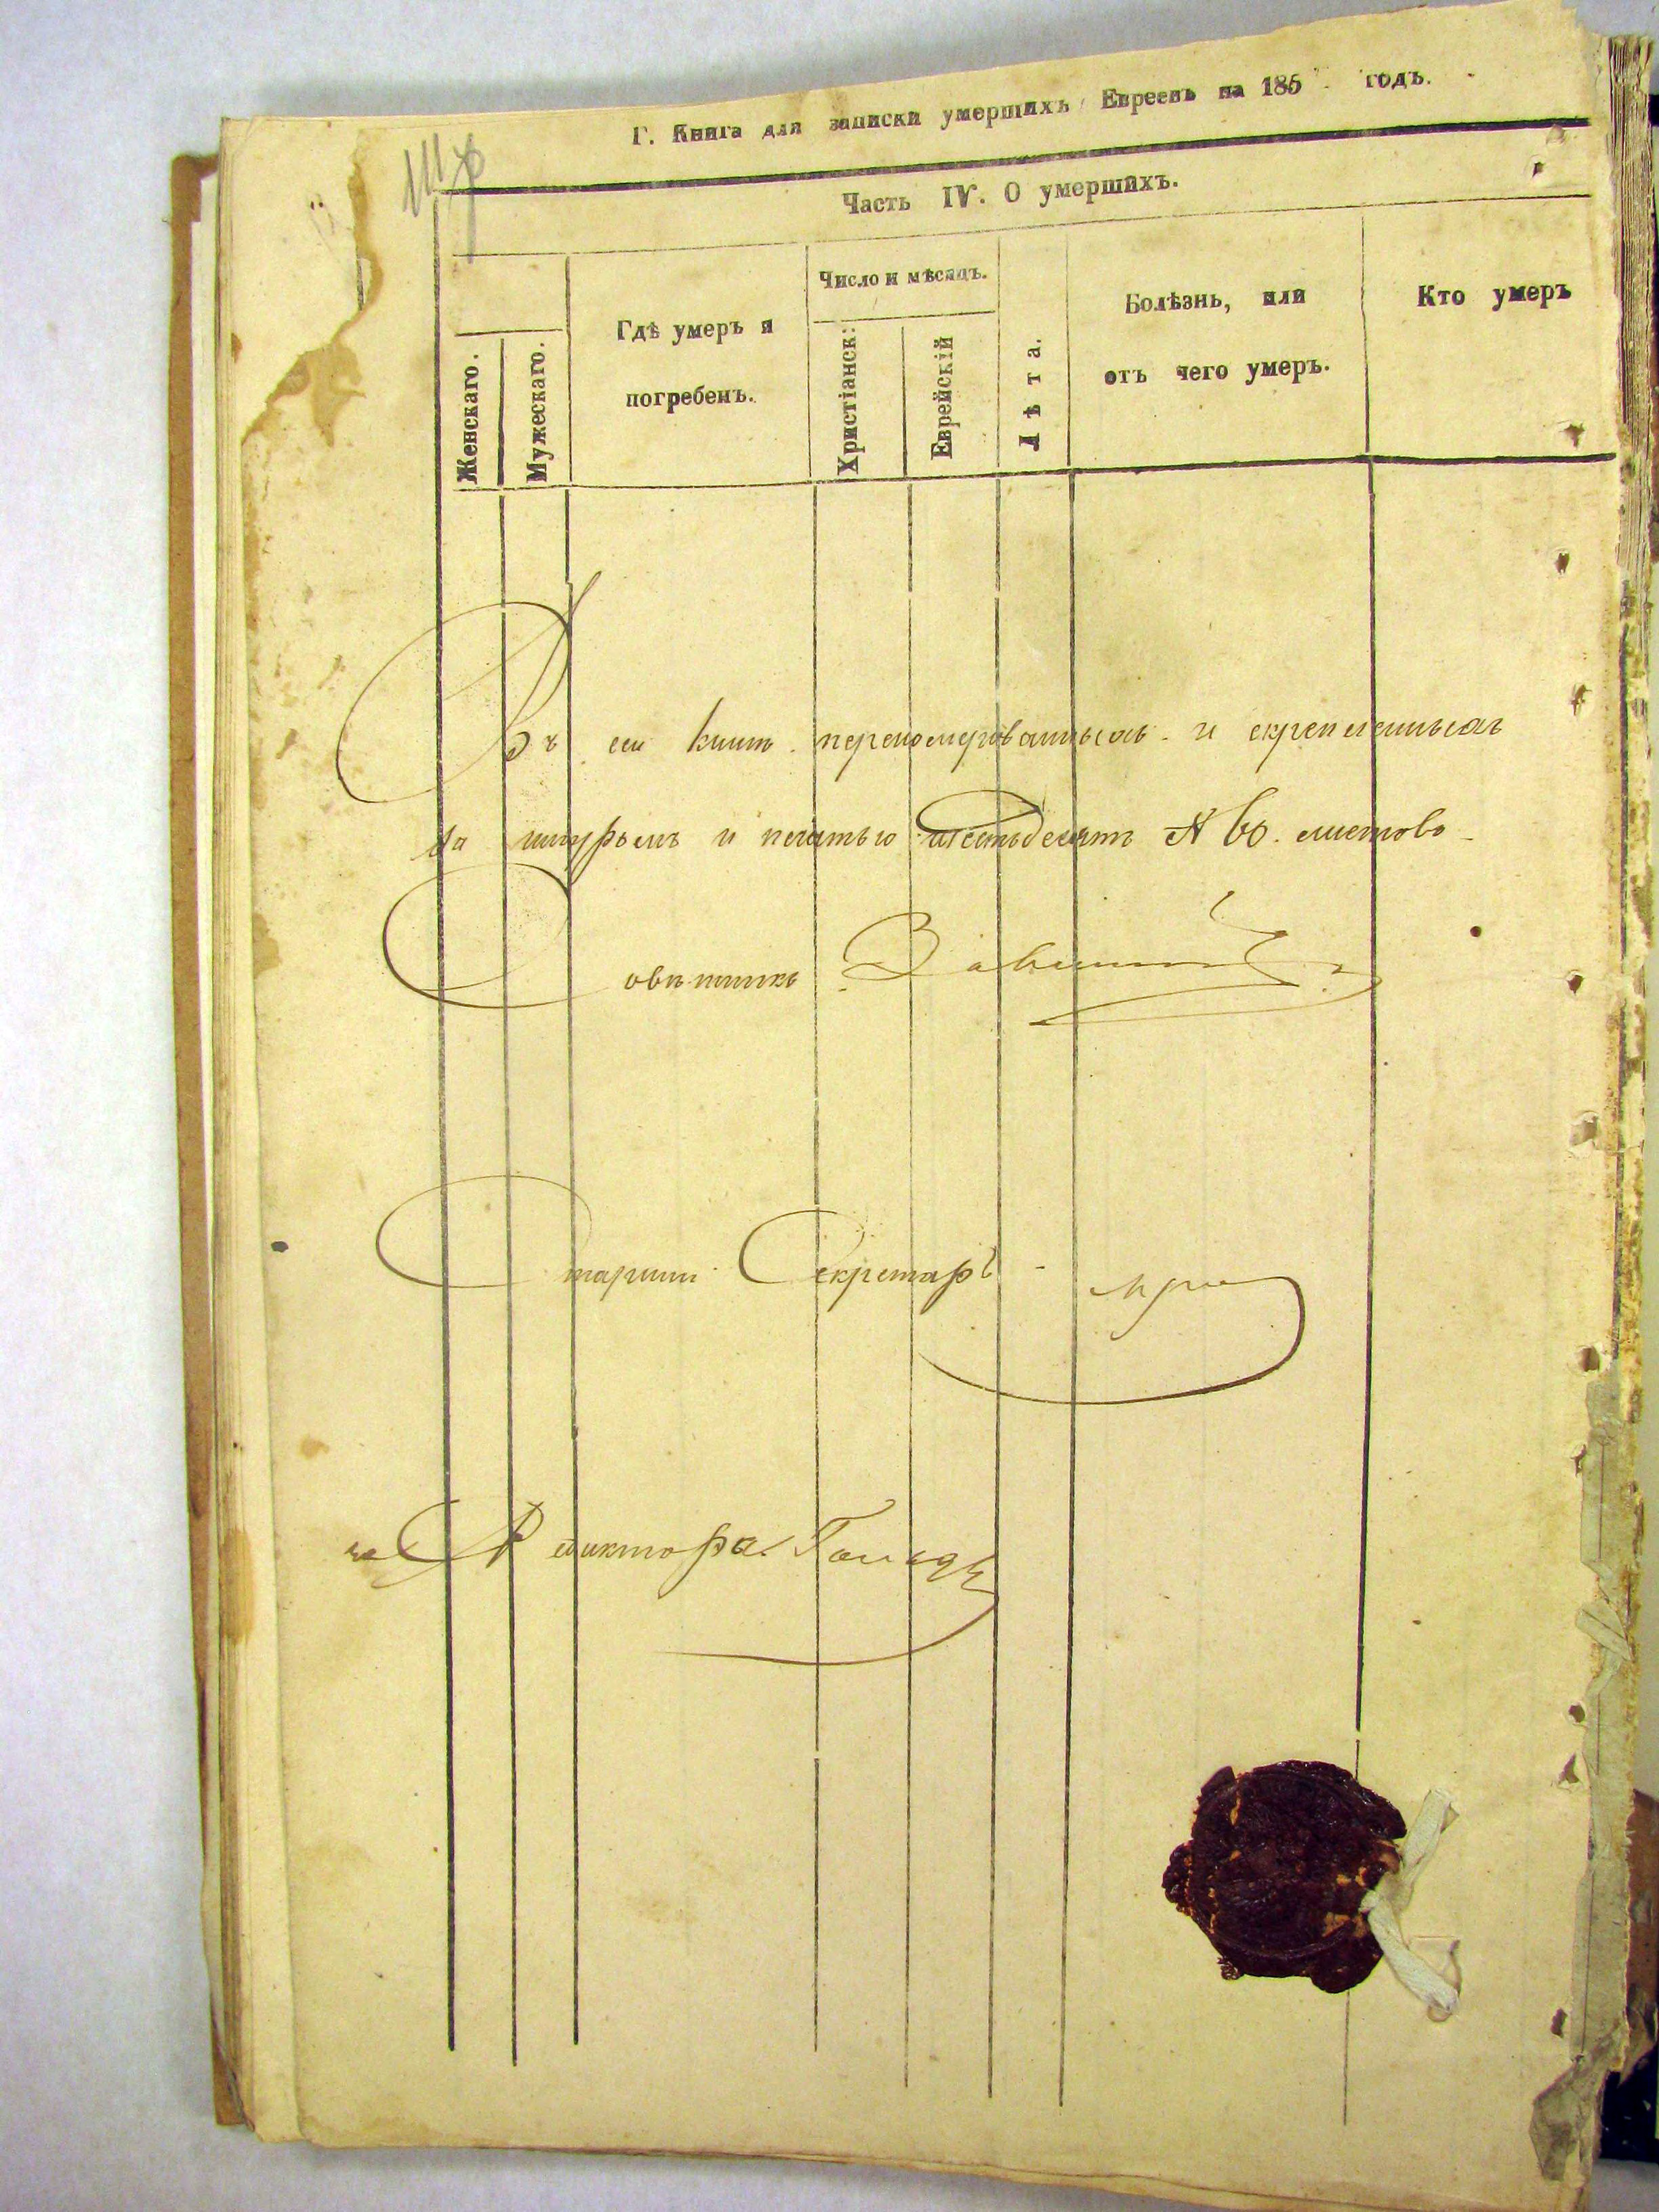 Г. Книга для записки умершихъ Евреевъ на 185 годъ.
Часть IV. О умершихъ.
Женскаго.
Мужескаго.
Гдѣ умеръ и
погребенъ.
Число и мѣсяцъ.
Христіанск:
Еврейскій
Лѣта.
Болѣзнь, или
отъ чего умеръ.
Кто умеръ
Въ сей книге перенумерованныхъ и скрепленныхъ
за шнуромъ и печатью шестьдесятъ листовъ
Совѣтникъ
Старший Секретарь